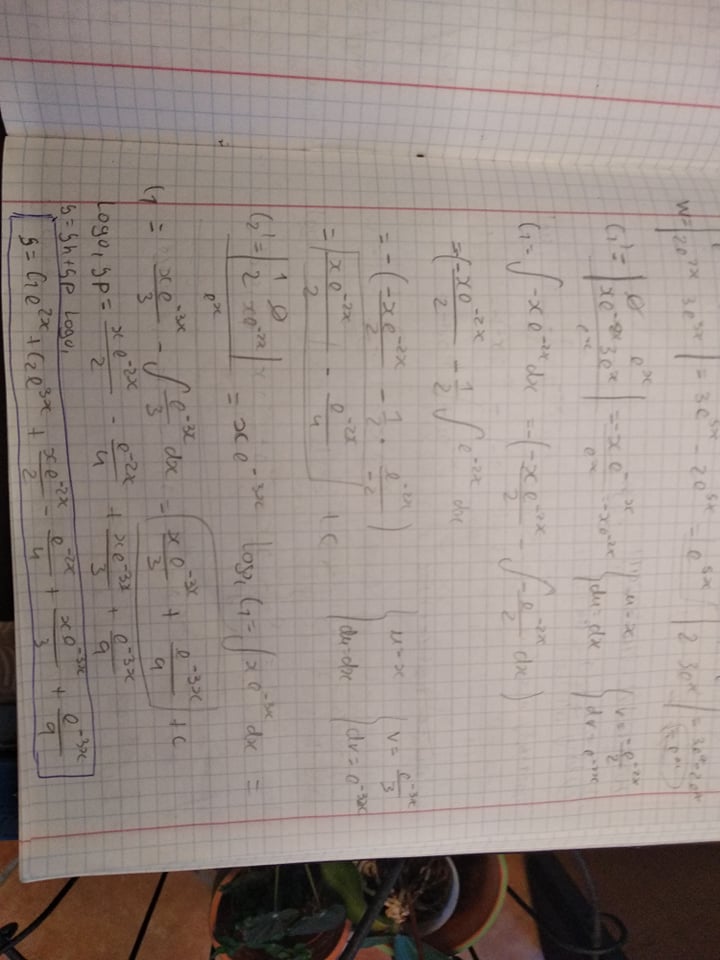 W = | 2e^{2x} 3e^{3x} | = 3e^{5x} - 2e^{5x} = e^{5x} | 2 3e^x | = 3e^x - 2e^x
(= e^x)
C1' = | 0 e^x ; xe^{-2x} 3e^x | / e^x = -xe^{-x} / e^x = -xe^{-2x} { u = x ; du = dx { v = -e^{-2x}/2 ; dv = e^{-2x}
C1 = ∫ -xe^{-2x} dx = -( -xe^{-2x}/2 - ∫ -e^{-2x}/2 dx )
= ( -xe^{-2x}/2 - 1/2 ∫ e^{-2x} dx
= - ( -xe^{-2x}/2 - 1/2 · e^{-2x}/-2 ) { u = x ; du = dx { v = e^{-3x}/3 ; dv = e^{-3x}
= xe^{-2x}/2 - e^{-2x}/4 + C
C2' = | 1 0 ; 2 xe^{-2x} | / e^x = xe^{-3x} Logo, C1 = ∫ xe^{-3x} dx =
C1 = xe^{-3x}/3 - ∫ e^{-3x}/3 dx = xe^{-3x}/3 + e^{-3x}/9 + C
Logo, yp = xe^{-2x}/2 - e^{-2x}/4 + xe^{-3x}/3 + e^{-3x}/9
y = yh + yp Logo,
y = C1e^{2x} + C2e^{3x} + xe^{-2x}/2 - e^{-2x}/4 + xe^{-3x}/3 + e^{-3x}/9